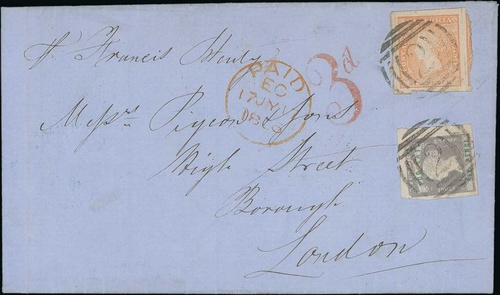 Pr Francis Henty
PAID
EC
17 JY
1860
3d
Messrs Pigeon & Sons
High Street
Borough
London